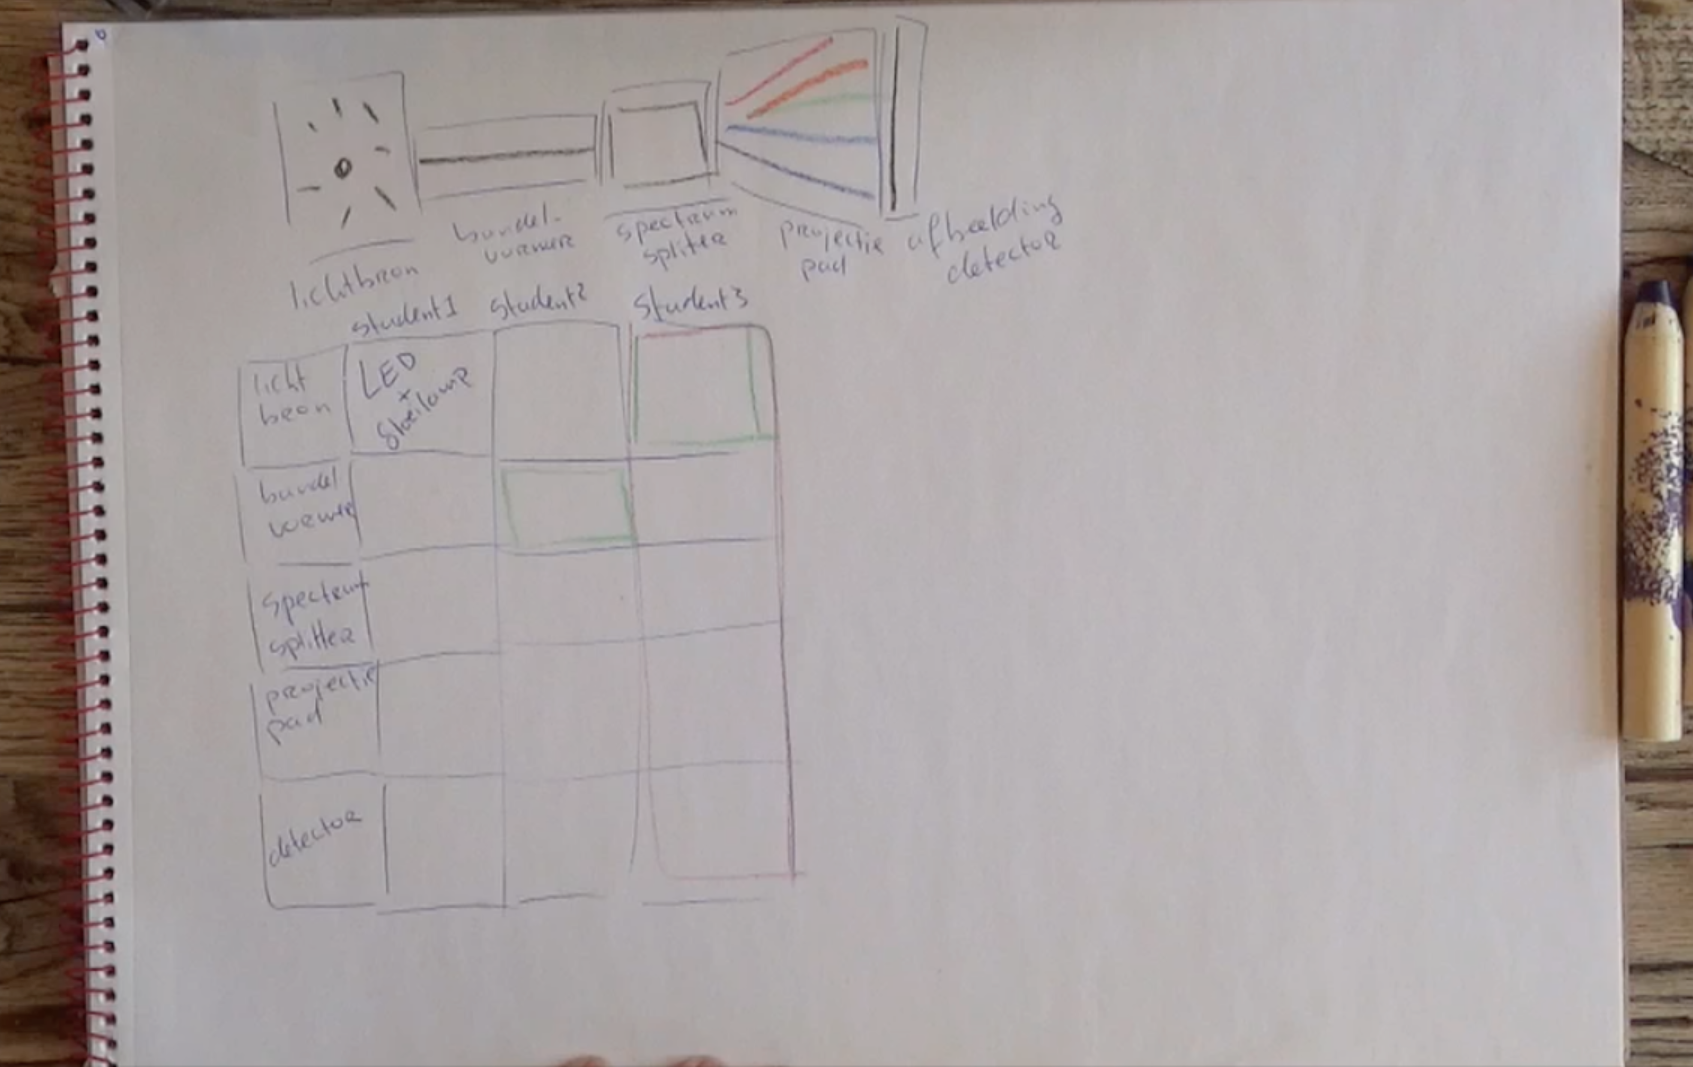 lichtbron
bundel-
vormer
spectrum
splitter
projectie
pad
afbeelding
detector
student1
student2
student3
licht
bron
LED
+
gloeilamp
bundel
vormer
spectrum
splitter
projectie
pad
detector